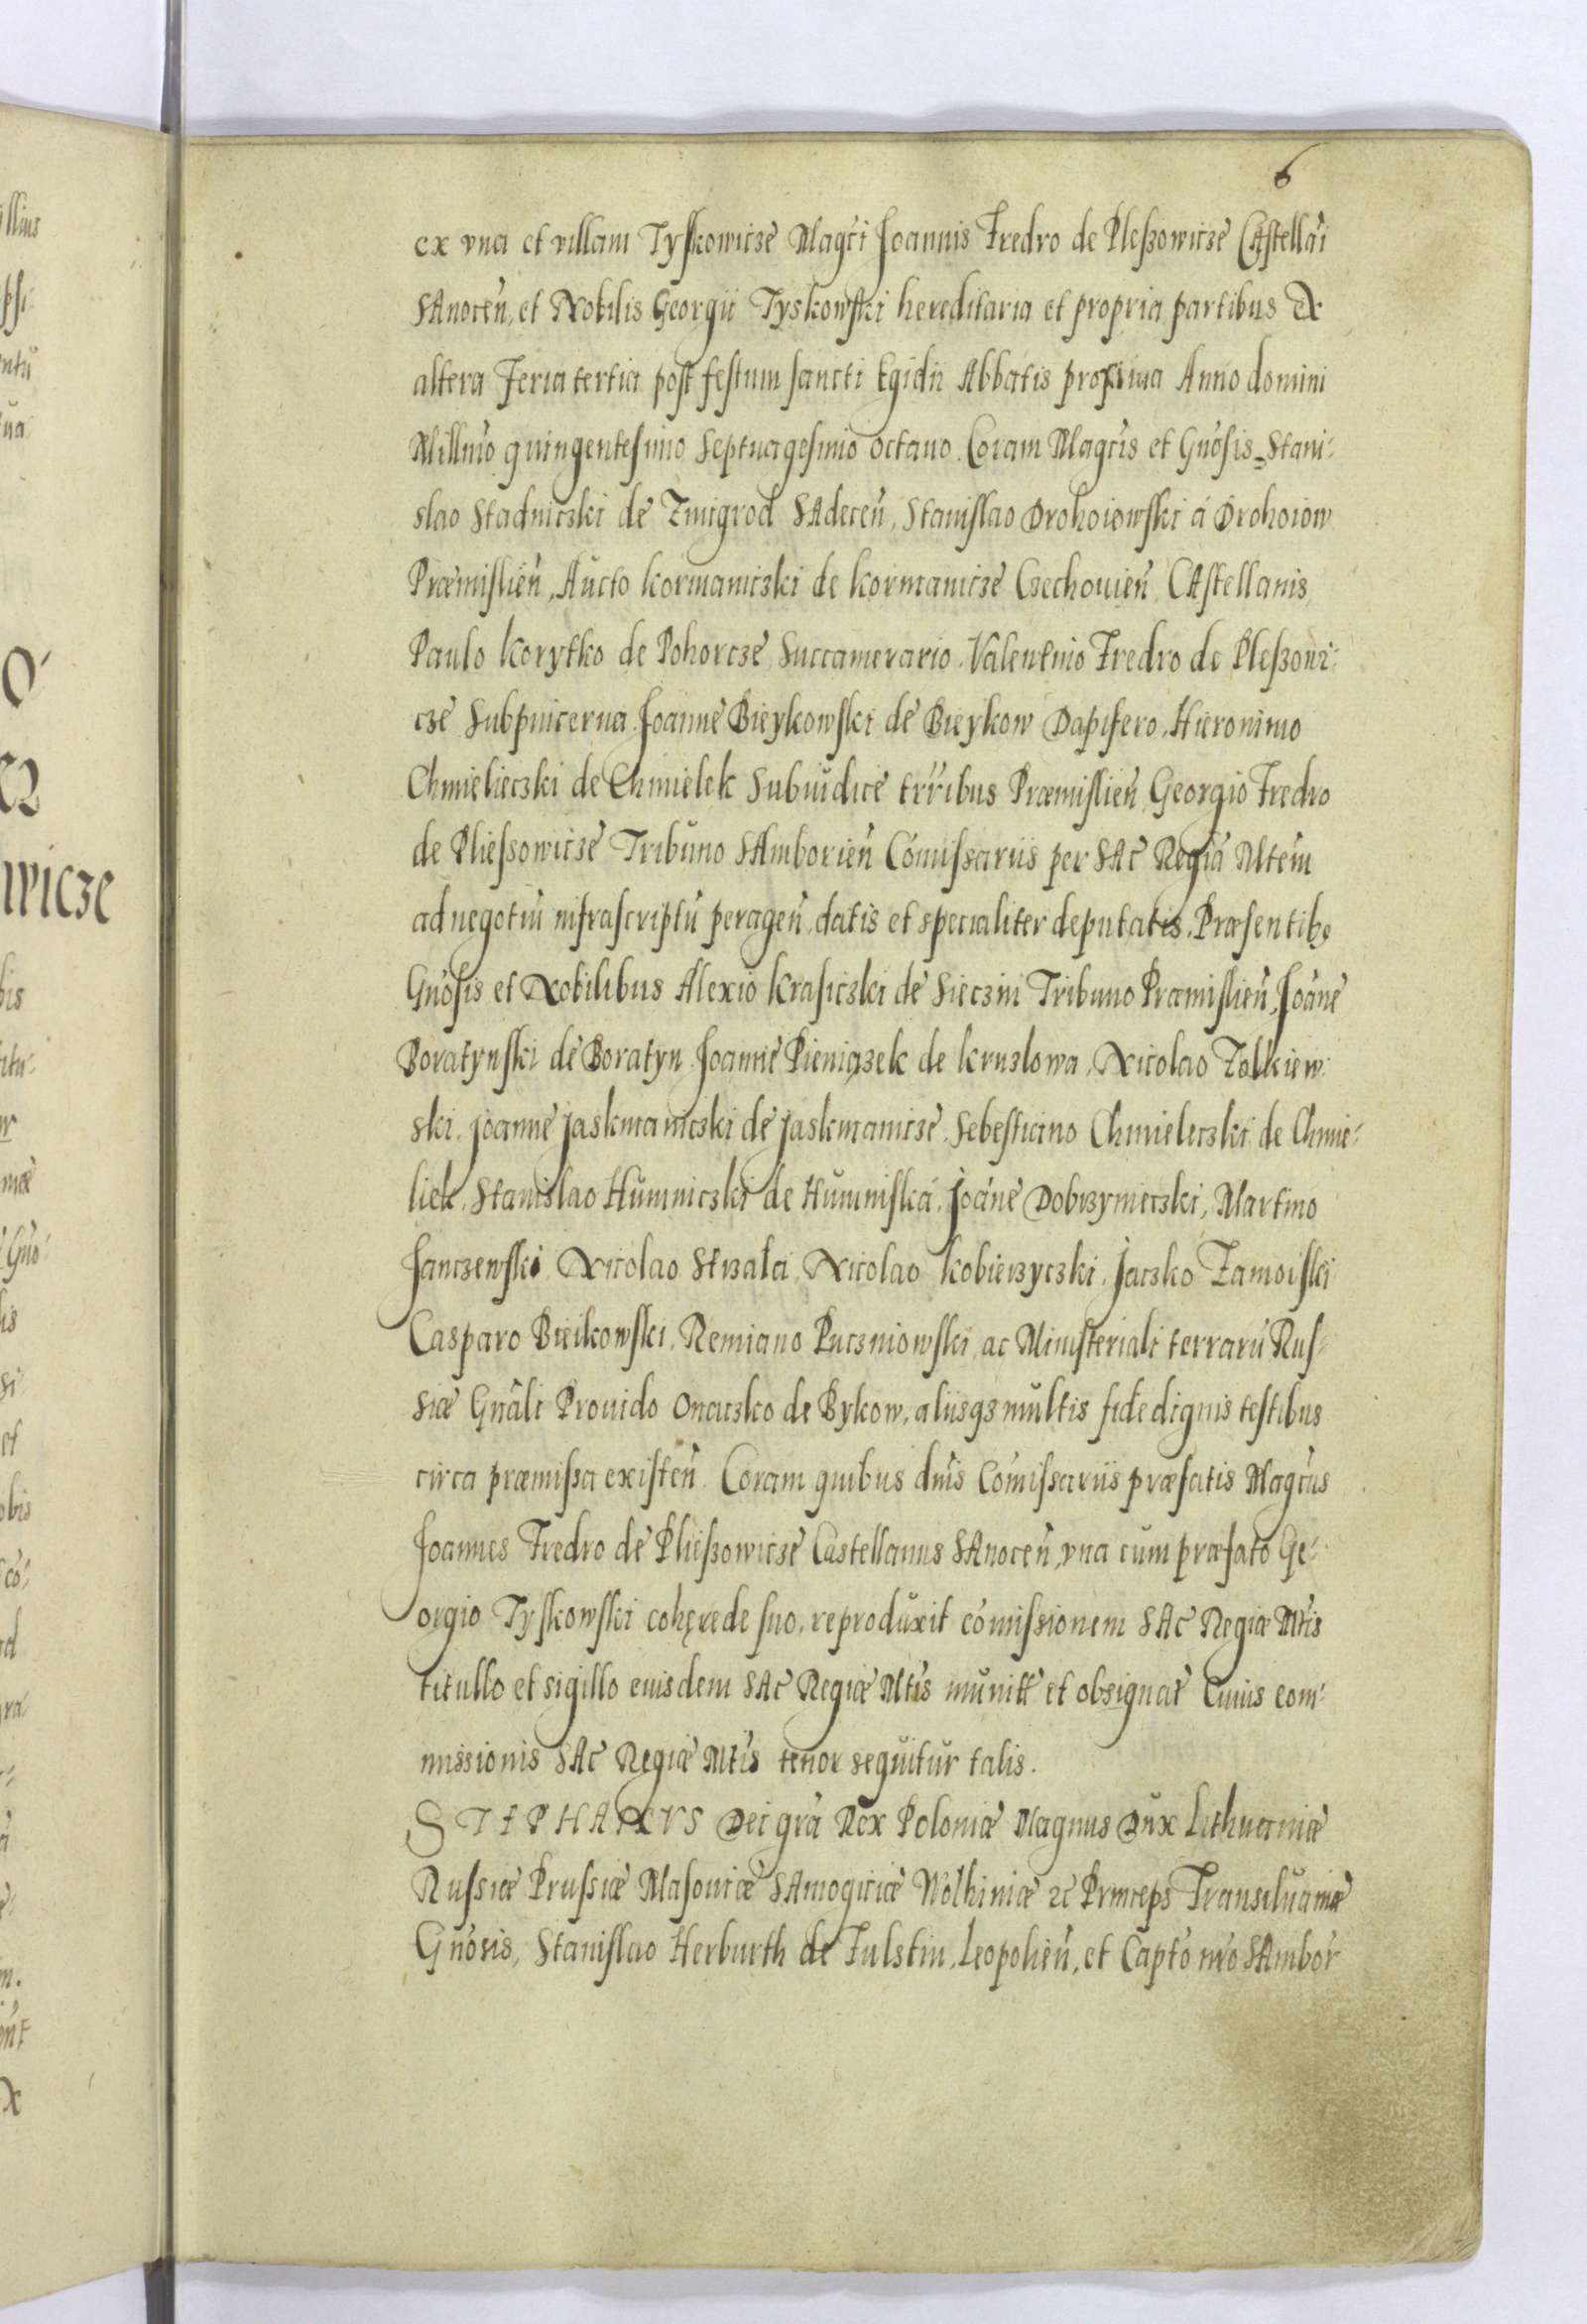 6
ex vna et villam Tyskowicze Magci Joannis Fredro de Pleszowicze Castellai
SAnoceñ, et Nobilis Georgii Tyskowski hereditaria et propria partibus ex
altera Feria tertia post festum sancti Egidii Abbatis proxima Anno domini
Millmo quingentesimo Septuagesimo octauo. Coram Magcis et Gnosis Stani-
slao Stadniczki de Zmigrod SAdeceñ, Stanislao Drohoiowski á Drohoiow
Præmislieñ, Aucto Kormaniczki de Kormanicze Czechouieñ CAstellanis,
Paulo Korytko de Pohorcze Succamerario. Valentino Fredro de Pleszowi-
cze Subpincerna Joanne Bieykowski de Bieykow Dapifero, Hieronimo
Chmielieczki de Chmielek Subiudice trribus Præmislieñ Georgio Fredro
de Pliessowicze Tribuno SAmborieñ Comissariis per SAc Regiã Mtem
ad negotiũ infrascriptũ perageñ, datis et specialiter deputatis. Præsentibȝ
Gnosis et Nobilibus Alexio Krasiczki de Sieczin Tribuno Præmislieñ, Joãne
Boratynski de Boratyn Joanne Pieniązek de Kruzlowa, Nicolao Zolkiew-
ski. Joanne Jaskmaniczki de Jaskmanicze, Sebestiano Chmieleczki de Chmie-
liek, Stanislao Humniczki de Humniska. Joãne Dobrzynieczki, Martino
Janczewski Nicolao Strzala, Nicolao Kobierzyczki. Jaczko Zamoiski
Casparo Bieikowski. Remiano Puczniowski, ac Ministeriali terrarũ Rus-
siæ Gnãli Prouido Onaczko de Bykow, aliisqȝ multis fide dignis testibus
circa præmissa existeñ. Coram quibus dnis Comissariis præfatis Magcus
Joannes Fredro de Plieszowicze Castellanus SAnoceñ, vna cum præfato Ge-
orgio Tyskowski cohęrede suo, reproduxit comissionem SAc Regiæ Mtis
titullo et sigillo eiusdem SAc Regiæ Mtis munitt et obsignat Cuius com-
missionis SAc Regiæ Mtis tenor sequitur talis.
STEPHANVS Dei grã Rex Poloniæ Magnus Dux Lithuaniæ
Russiæ Prussiæ Masouiæ SAmogitiæ Wolhiniæ ꝛc Princeps Transiluaniæ
Gnosis, Stanislao Herburth de Fulstin, Leopolieñ, et Capto nro SAmbor